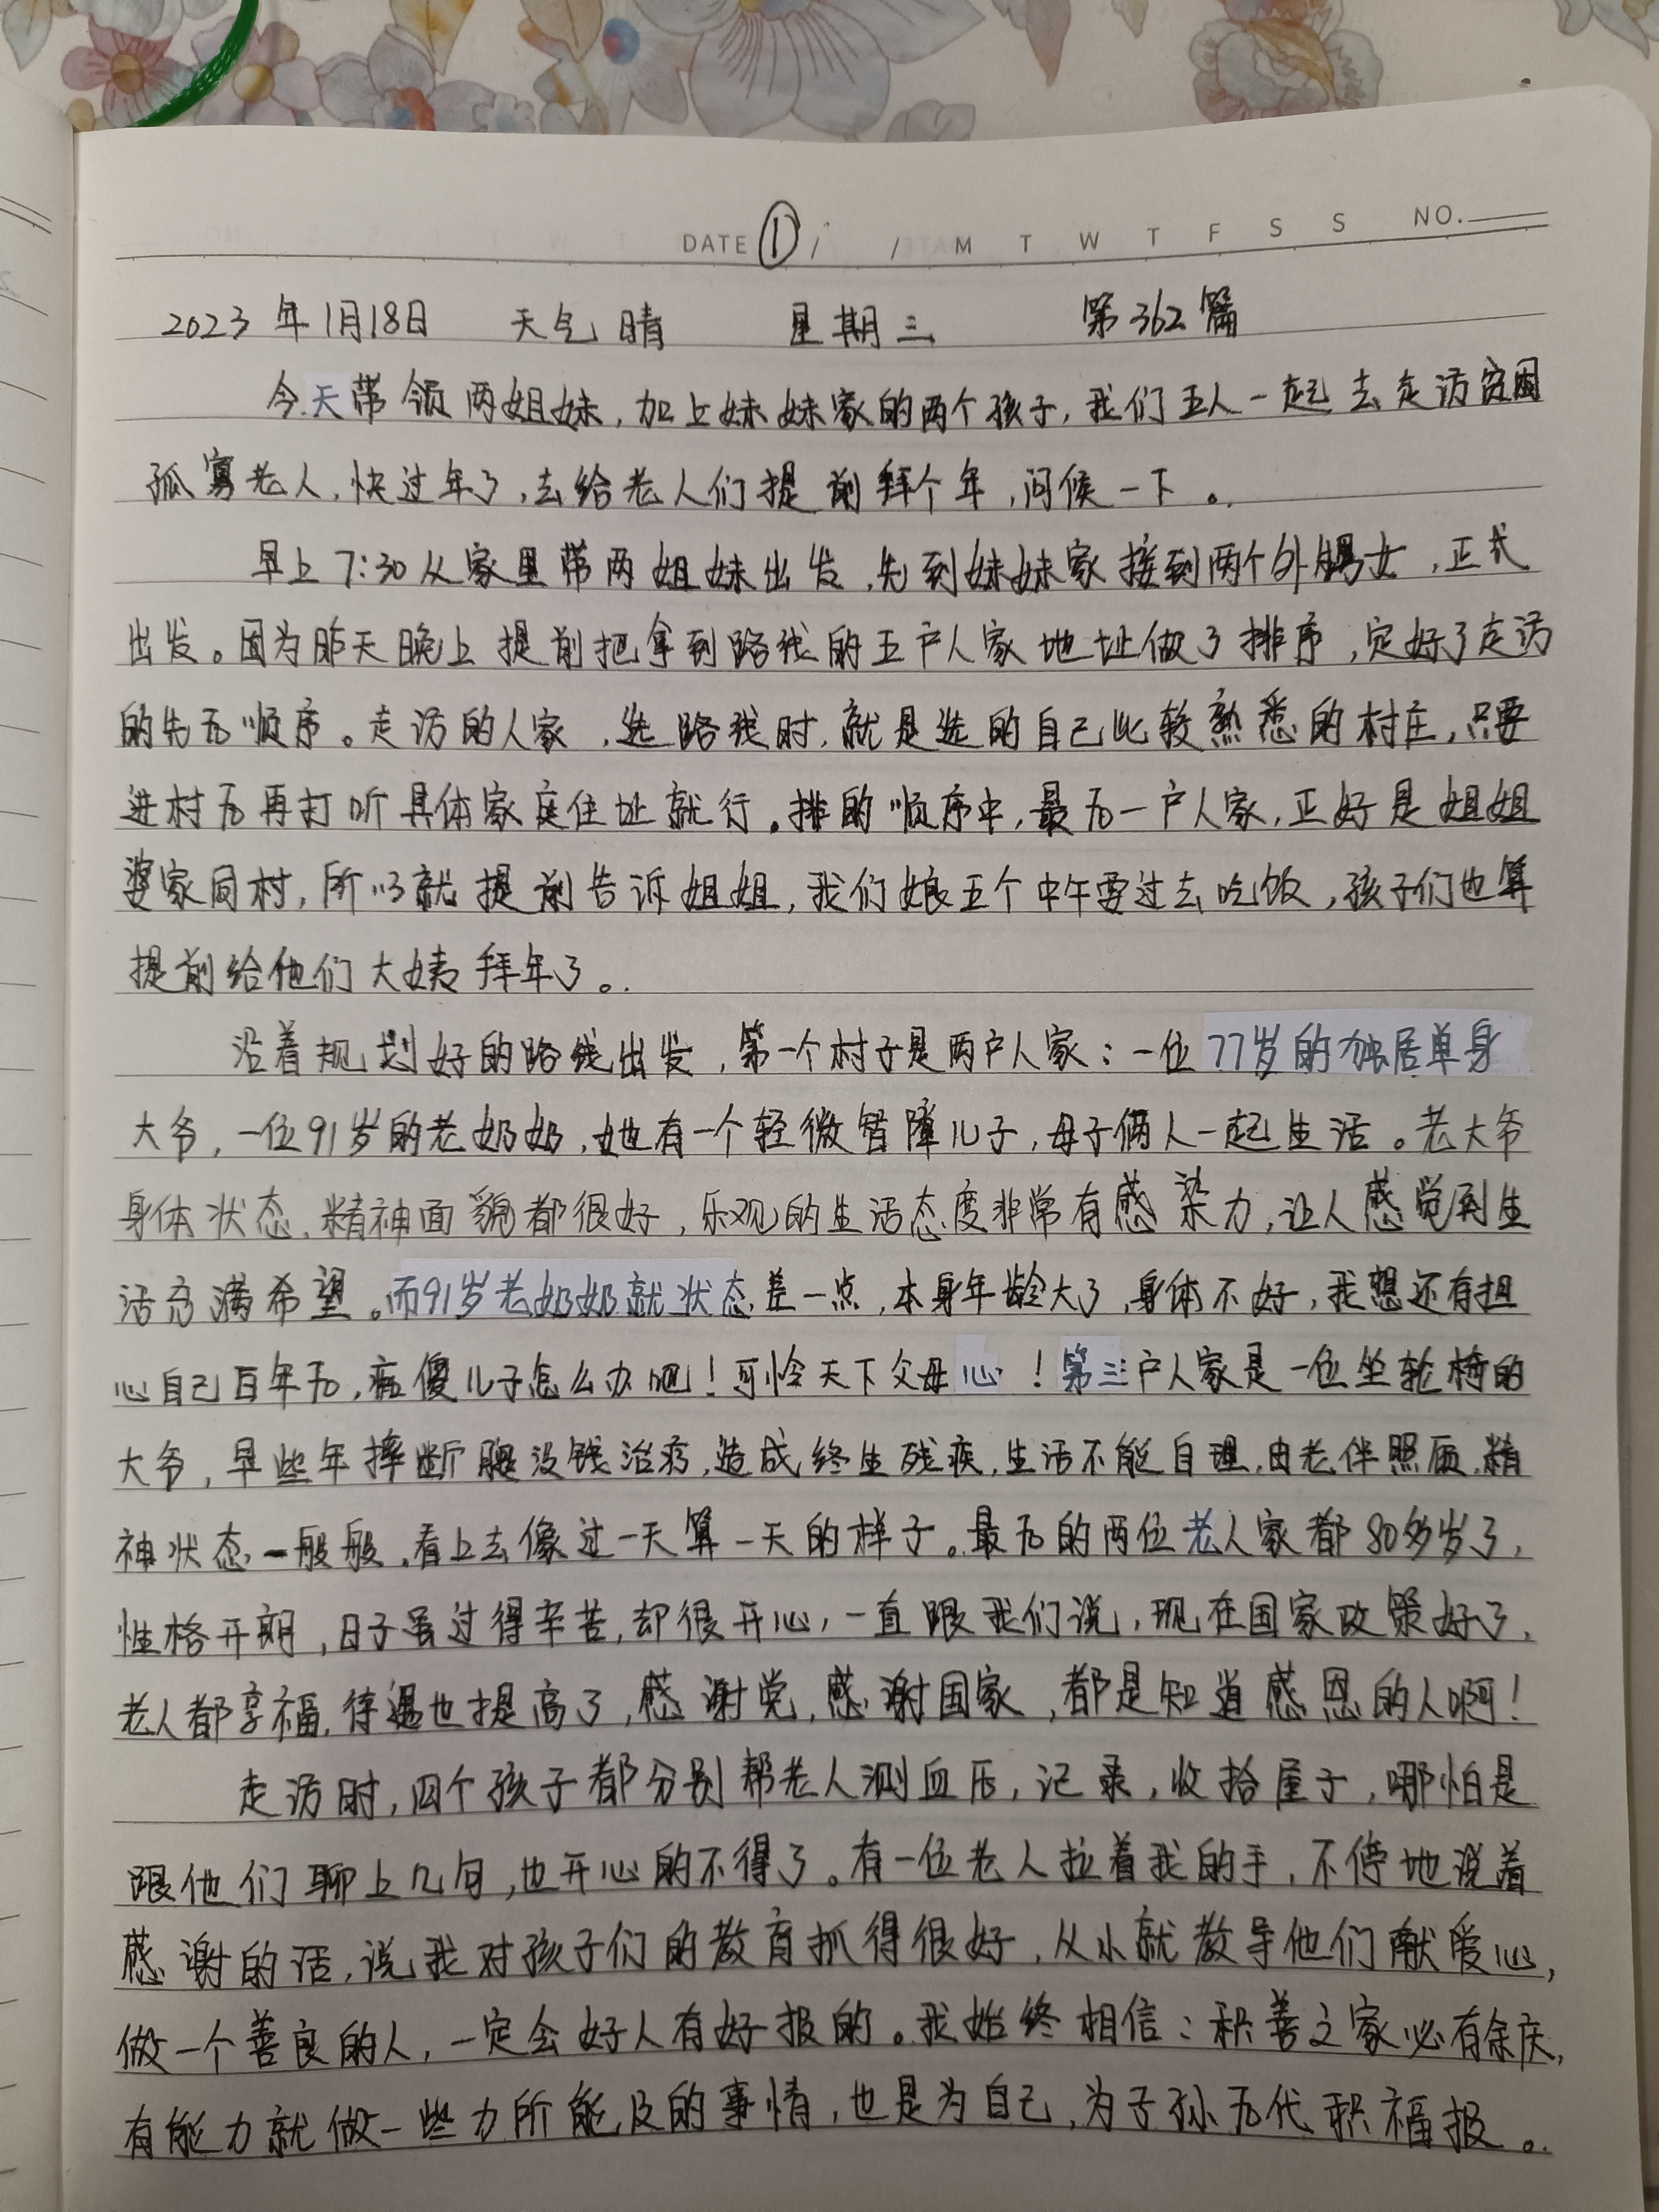 DATE ① / / M T W T F S S NO.
2023年1月18日 天气晴 星期三 第362篇
今天带领两姐妹,加上妹妹家的两个孩子,我们五人一起去走访贫困
孤寡老人,快过年了,去给老人们提前拜个年,问候一下。
早上7:30从家里带两姐妹出发,先到妹妹家接到两个外甥女,正式
出发。因为昨天晚上提前把拿到路线的五户人家地址做了排序,定好了走访
的先后顺序。走访的人家,选路线时,就是选的自己比较熟悉的村庄,只要
进村后再打听具体家庭住址就行。排的顺序中,最后一户人家,正好是姐姐
婆家同村,所以就提前告诉姐姐,我们娘五个中午要过去吃饭,孩子们也算
提前给他们大姨拜年了。
沿着规划好的路线出发,第一个村子是两户人家:一位77岁的独居单身
大爷,一位91岁的老奶奶,她有一个轻微智障儿子,母子俩人一起生活。老大爷
身体状态,精神面貌都很好,乐观的生活态度非常有感染力,让人感觉到生
活充满希望。而91岁老奶奶就状态差一点,本身年龄大了,身体不好,我想还有担
心自己百年后,痴傻儿子怎么办吧!可怜天下父母心!第三户人家是一位坐轮椅的
大爷,早些年摔断腿没钱治疗,造成终生残疾,生活不能自理,由老伴照顾,精
神状态一般般,看上去像过一天算一天的样子。最后的两位老人家都80多岁了,
性格开朗,日子虽过得辛苦,却很开心,一直跟我们说,现在国家政策好了,
老人都享福,待遇也提高了,感谢党,感谢国家,都是知道感恩的人啊!
走访时,四个孩子都分别帮老人测血压,记录,收拾屋子,哪怕是
跟他们聊上几句,也开心的不得了。有一位老人拉着我的手,不停地说着
感谢的话,说我对孩子们的教育抓得很好,从小就教导他们献爱心,
做一个善良的人,一定会好人有好报的。我始终相信:积善之家必有余庆,
有能力就做一些力所能及的事情,也是为自己,为子孙后代积福报。